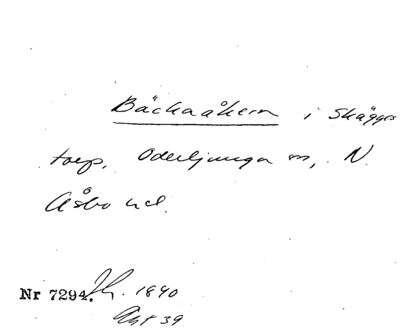 Bäckaåkern i Skäggs
torp, Oderljunga sn, N.
Åsbo hd.
Nr 7294. 1840
Akt 39